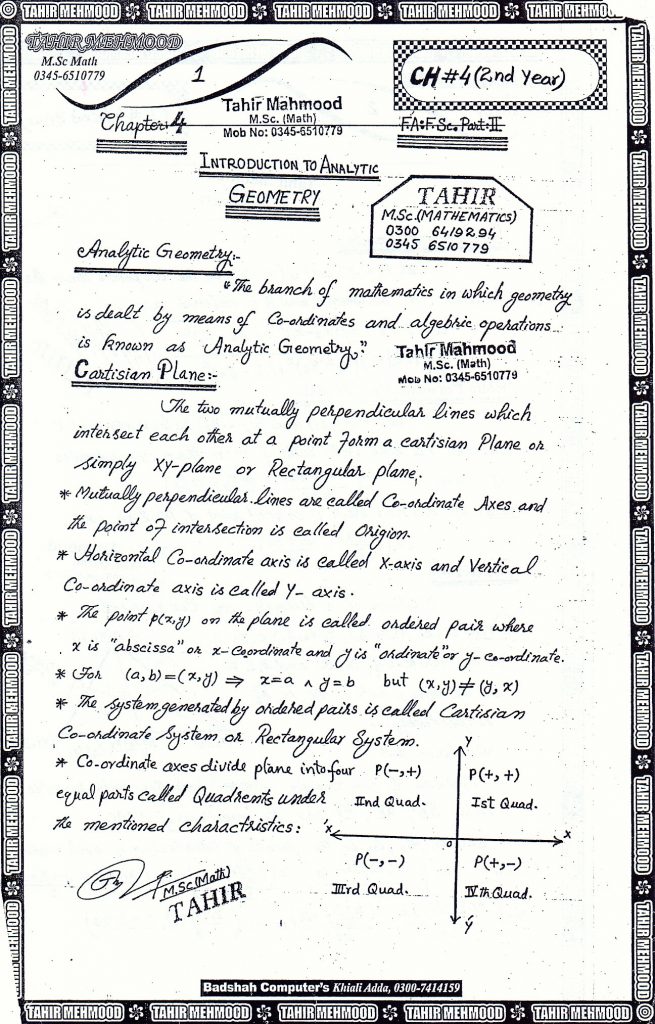 TAHIR MEHMOOD TAHIR MEHMOOD TAHIR MEHMOOD TAHIR MEHMOOD TAHIR MEHMOOD
TAHIR MEHMOOD
M.Sc Math
0345-6510779
1
CH #4 (2nd Year)
Tahir Mahmood
M.Sc. (Math)
Mob No: 0345-6510779
Chapter: 4
F.A: F.Sc. Part: II
INTRODUCTION TO ANALYTIC
GEOMETRY
TAHIR
M.Sc.(MATHEMATICS)
0300 6419294
0345 6510779
Analytic Geometry:-
"The branch of mathematics in which geometry
is dealt by means of Co-ordinates and algebric operations
is known as Analytic Geometry."
Tahir Mahmood
M.Sc. (Math)
Mob No: 0345-6510779
Cartisian Plane:-
The two mutually perpendicular lines which
intersect each other at a point form a cartisian Plane or
simply XY-plane or Rectangular plane.
* Mutually perpendicular lines are called Co-ordinate Axes and
the point of intersection is called Origion.
* Horizontal Co-ordinate axis is called X-axis and Vertical
Co-ordinate axis is called Y-axis.
* The point P(x,y) on the plane is called ordered pair where
x is "abscissa" or x-coordinate and y is "ordinate" or y-co-ordinate.
* For (a,b)=(x,y) ⇒ x=a ∧ y=b but (x,y)≠(y,x)
* The system generated by ordered pairs is called Cartisian
Co-ordinate System or Rectangular System.
* Co-ordinate axes divide plane into four
equal parts called Quadrents under
the mentioned charactristics:
Y
P(-,+) P(+,+)
IInd Quad. Ist Quad.
'X O X
P(-,-) P(+,-)
IIIrd Quad. IVth Quad.
'Y
M.Sc.(Math)
TAHIR
Badshah Computer's Khiali Adda, 0300-7414159
TAHIR MEHMOOD TAHIR MEHMOOD TAHIR MEHMOOD TAHIR MEHMOOD TAHIR MEHMOOD